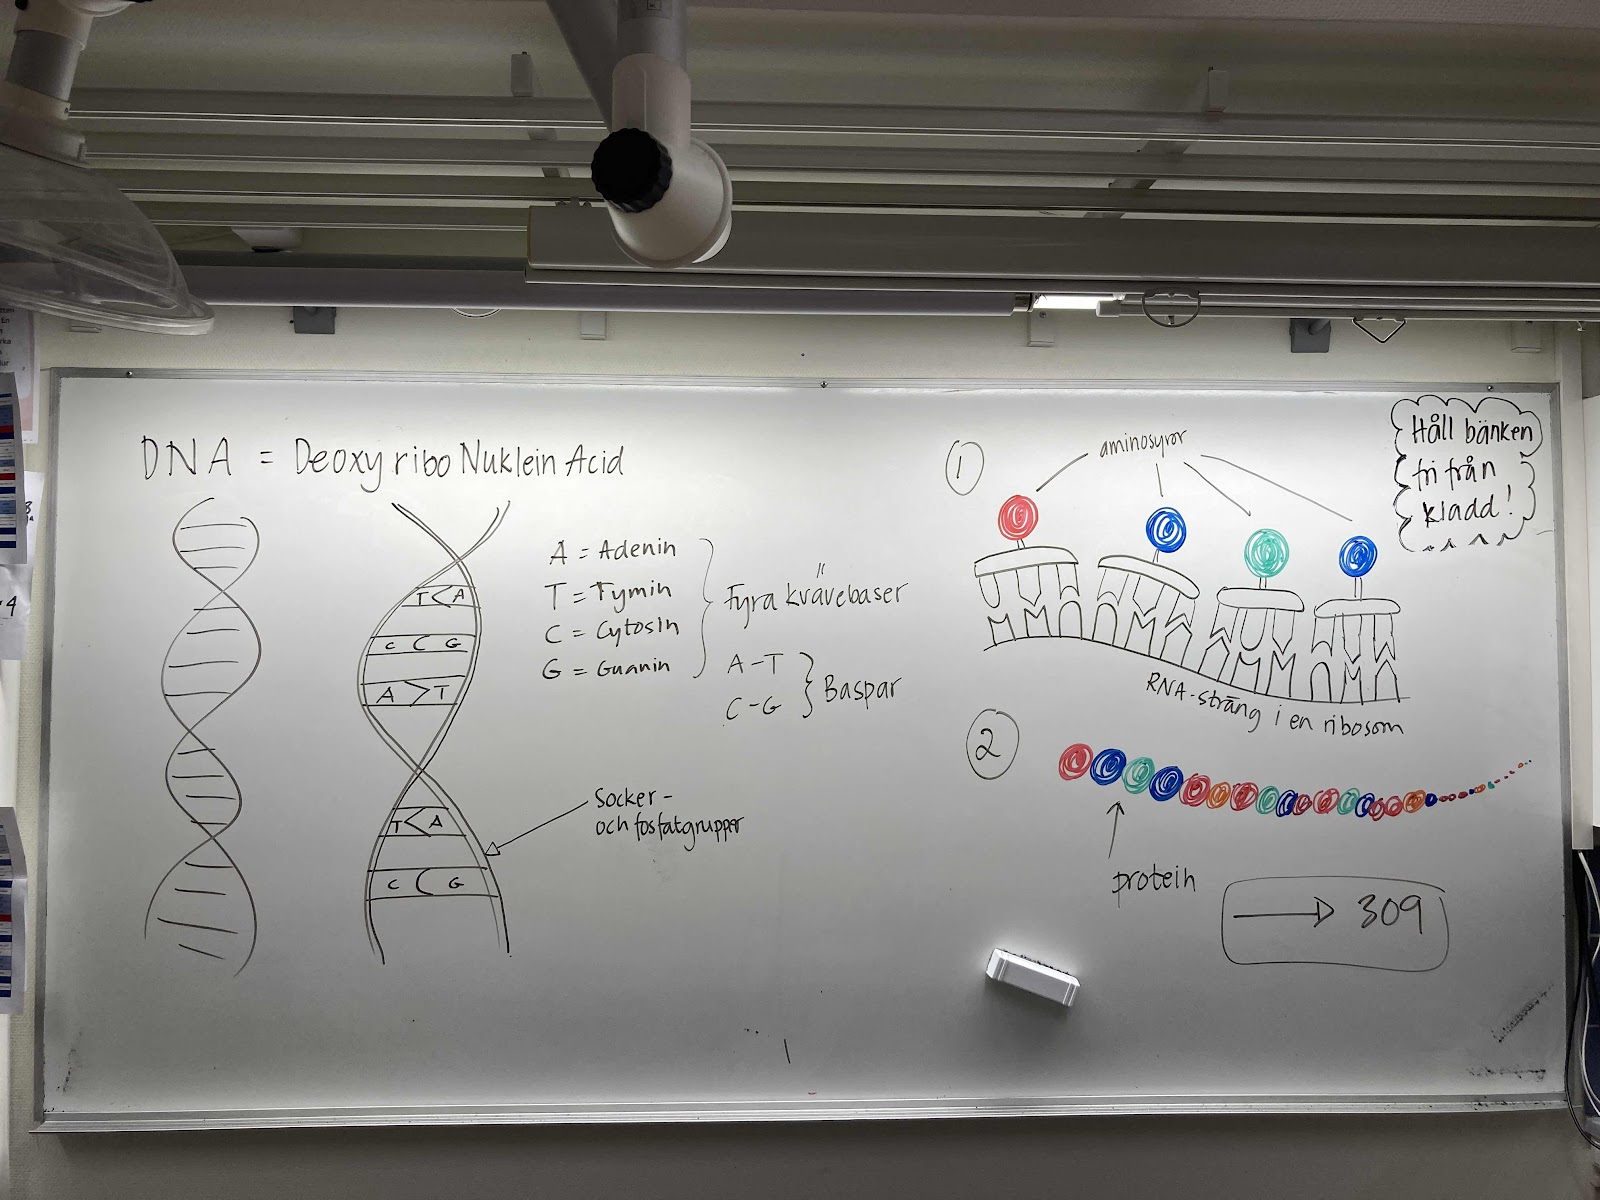 DNA = Deoxyribo Nuklein Acid
T A
C G
A T
T A
C G
A = Adenin
T = Tymin
C = Cytosin
G = Guanin
Fyra kvävebaser
A-T
C-G
Baspar
Socker-
och fosfatgrupper
1
aminosyror
RNA-sträng i en ribosom
2
protein
→ 309
Håll bänken
fri från
kladd!